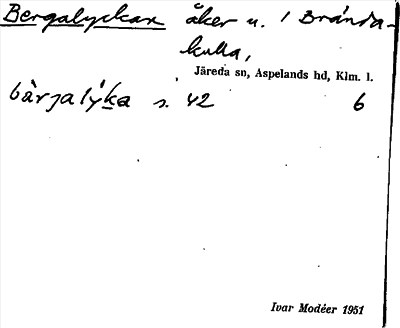 Bergalyckan åker u. 1 Brända-
kulla,
Järeda sn, Aspelands hd, Klm. l.
bàrjalýka s. 42 6
Ivar Modéer 1951